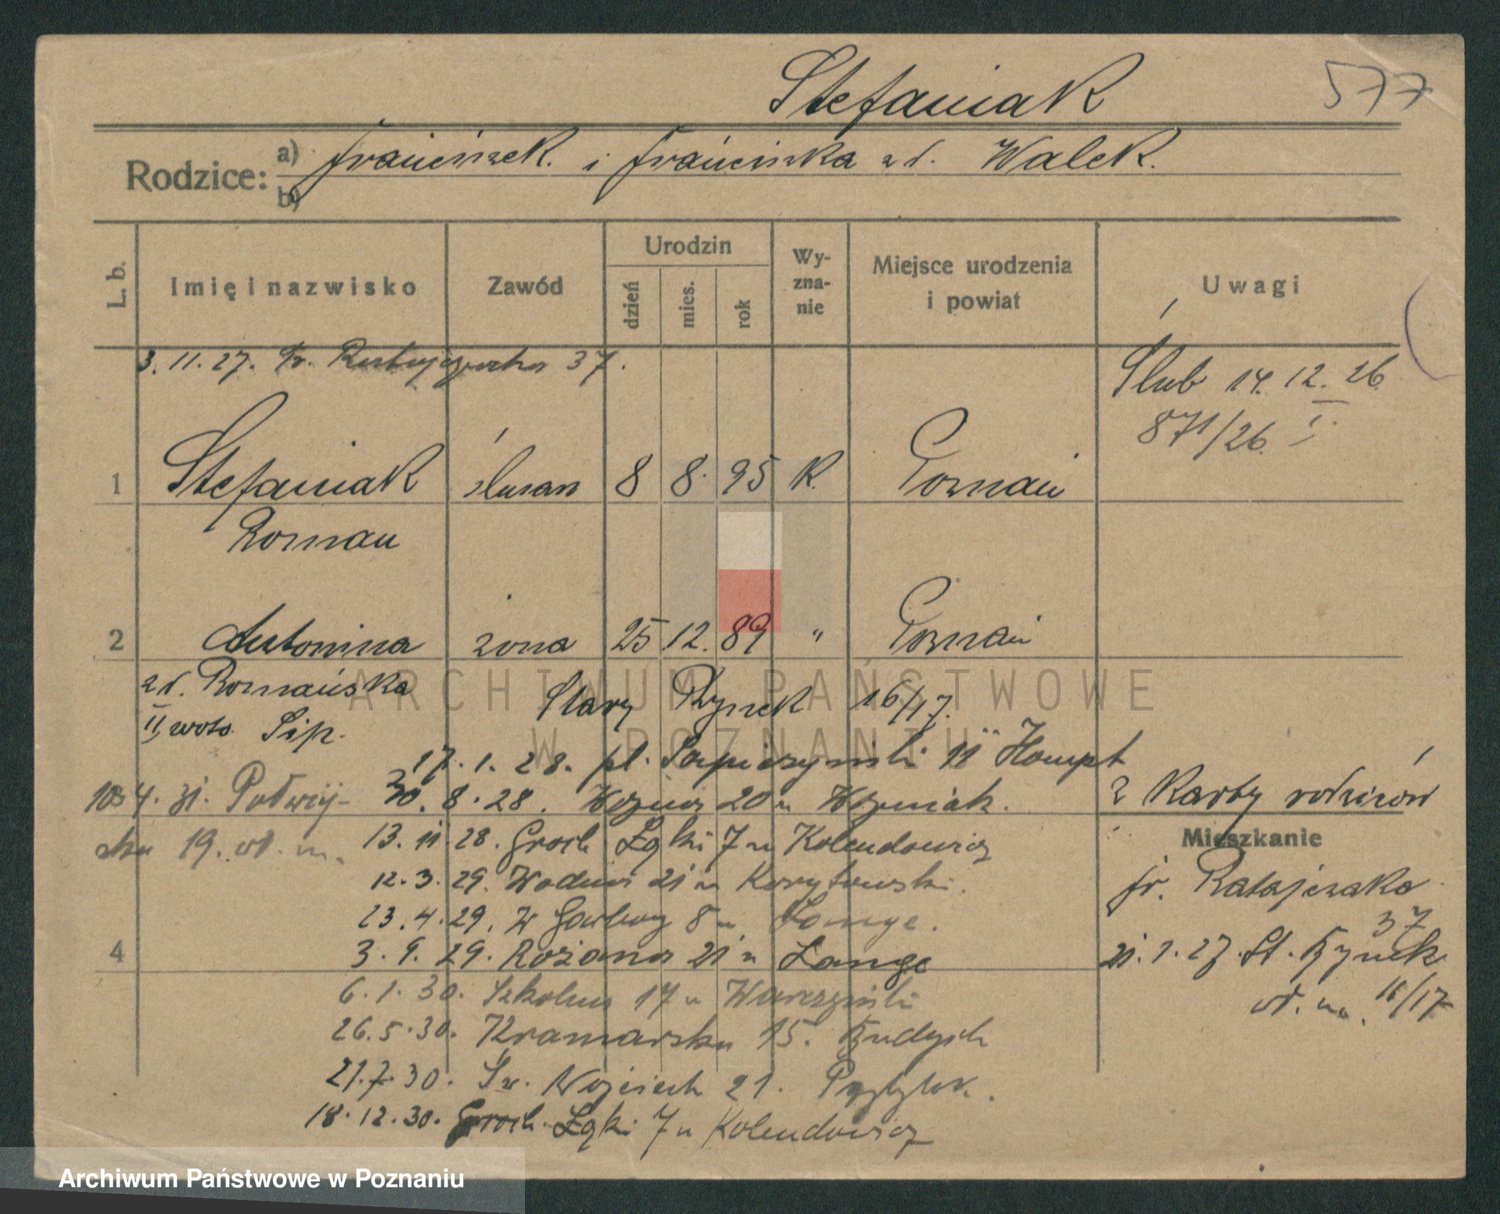 Stefaniak
577
Rodzice: a) Franciszek i Franciszka zd. Walek.
b)
L. b.
Imię i nazwisko
Zawód
Urodzin
dzień
mies.
rok
Wy-
zna-
nie
Miejsce urodzenia
i powiat
Uwagi
3. 11. 27. fr. Ratajczaka 37.
Ślub 14. 12. 26
871/26. I.
1 Stefaniak ślusarz 8 8. 95 R. Poznań
Roman
2 Antonina żona 25 12. 89 " Poznań
zd. Poznańska
II, woto Sip.
Stary Rynek 16/17.
ARCHIWUM PAŃSTWOWE
W POZNANIU
17. 1. 28. pl. Sapieżyński 11 Hampt
30. 8. 28. Woźna 20 u Woźniak.
4. 31.
19. od. m.
2 Karty rodziców
Mieszkanie
13. 11. 28. Groch. Łąki 7 u Kolendowicz
12. 3. 29. Wodna 21 u
23. 4. 29. W Garbary 8 u Lange.
4
3. 9. 29. Różana 21 u Lange
fr. Ratajczaka
37
21. 1. 27. St. Rynek
od. m. 16/17
6. 1. 30. Szkolna 17 u
26. 5. 30. Kramarska 15.
21. 7. 30. Św. Wojciech 21.
18. 12. 30. Groch. Łąki 7 u Kolendowicz
Archiwum Państwowe w Poznaniu